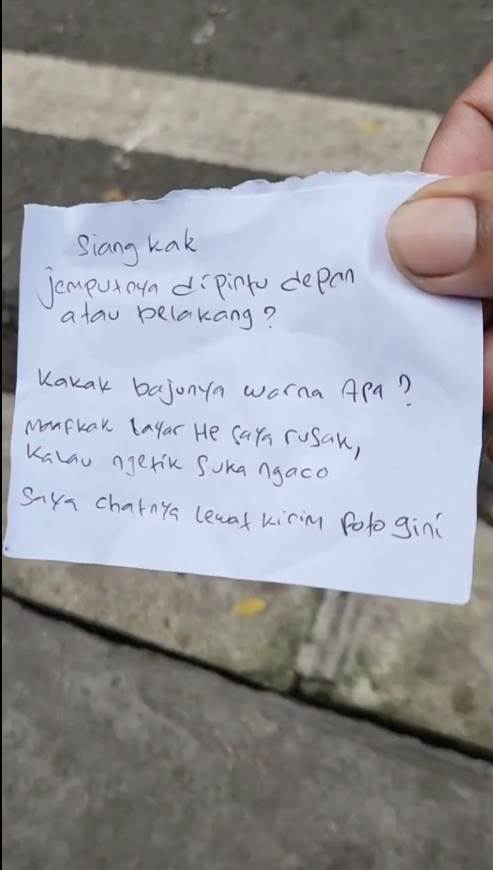 Siang kak
jemputnya dipintu depan
atau belakang?
Kakak bajunya warna Apa?
maafkak layar He saya rusak,
kalau ngetik Suka ngaco
saya chatnya lewat kirim foto gini